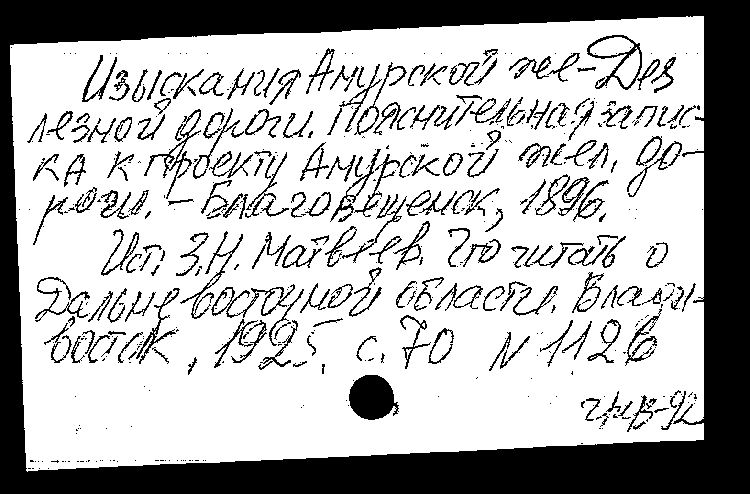 Изыскания Амурской же- Дез
лезной дороги. Пояснительная запис-
ка к проекту Амурской жел. до-
роги. - Благовещенск, 1896.
Ист. З.Н. Матвеев. Что читать о
Дальневосточной области. Влади-
восток, 1925. с. 70 N 1126